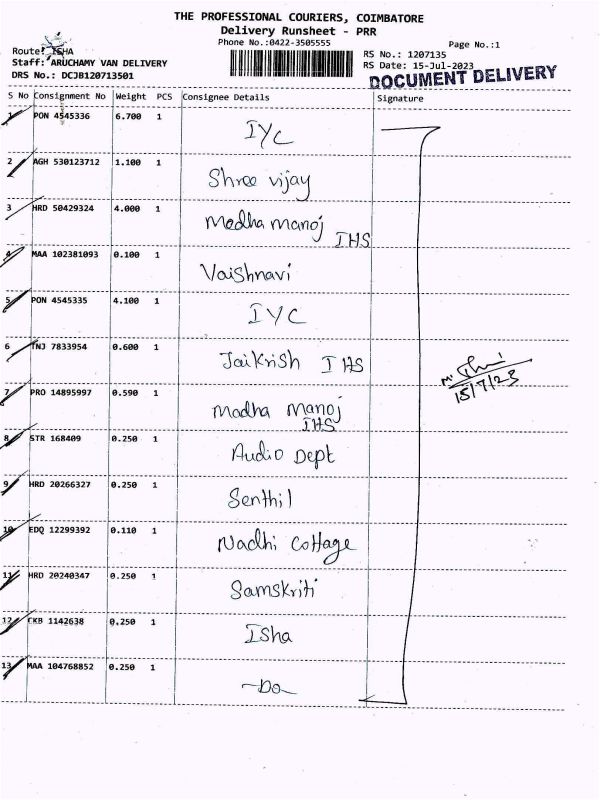 THE PROFESSIONAL COURIERS, COIMBATORE
Delivery Runsheet - PRR
Phone No.:0422-3505555
Page No.:1
Route: ISHA
RS No.: 1207135
Staff: ARUCHAMY VAN DELIVERY
RS Date: 15-Jul-2023
DRS No.: DCJB120713501
DOCUMENT DELIVERY
S No Consignment No Weight PCS Consignee Details Signature
1 PON 4545336 6.700 1 IYC
2 AGH 530123712 1.100 1 Shree vijay
3 HRD 50429324 4.000 1 Medha Manoj
IHS
4 MAA 102381093 0.100 1 Vaishnavi
5 PON 4545335 4.100 1 IYC
6 TNJ 7833954 0.600 1 Jaikrish IHS
7 PRO 14895997 0.590 1 Madha Manoj
IHS
15/7/23
8 STR 168409 0.250 1 Audio Dept
9 HRD 20266327 0.250 1 Senthil
10 EDQ 12299392 0.110 1 Nadhi Cottage
11 HRD 20240347 0.250 1 Samskriti
12 CKB 1142638 0.250 1 Isha
13 MAA 104768852 0.250 1 -Do-